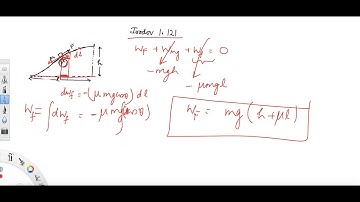 Irodov 1.121
W_F + W_mg + W_f = 0
-mgh
-μmgl
dl
h
dW_f = -(μmgcosθ) dl
W_f = ∫dW_f = -μmg∫(cosθ)
W_F = mg(h+μl)